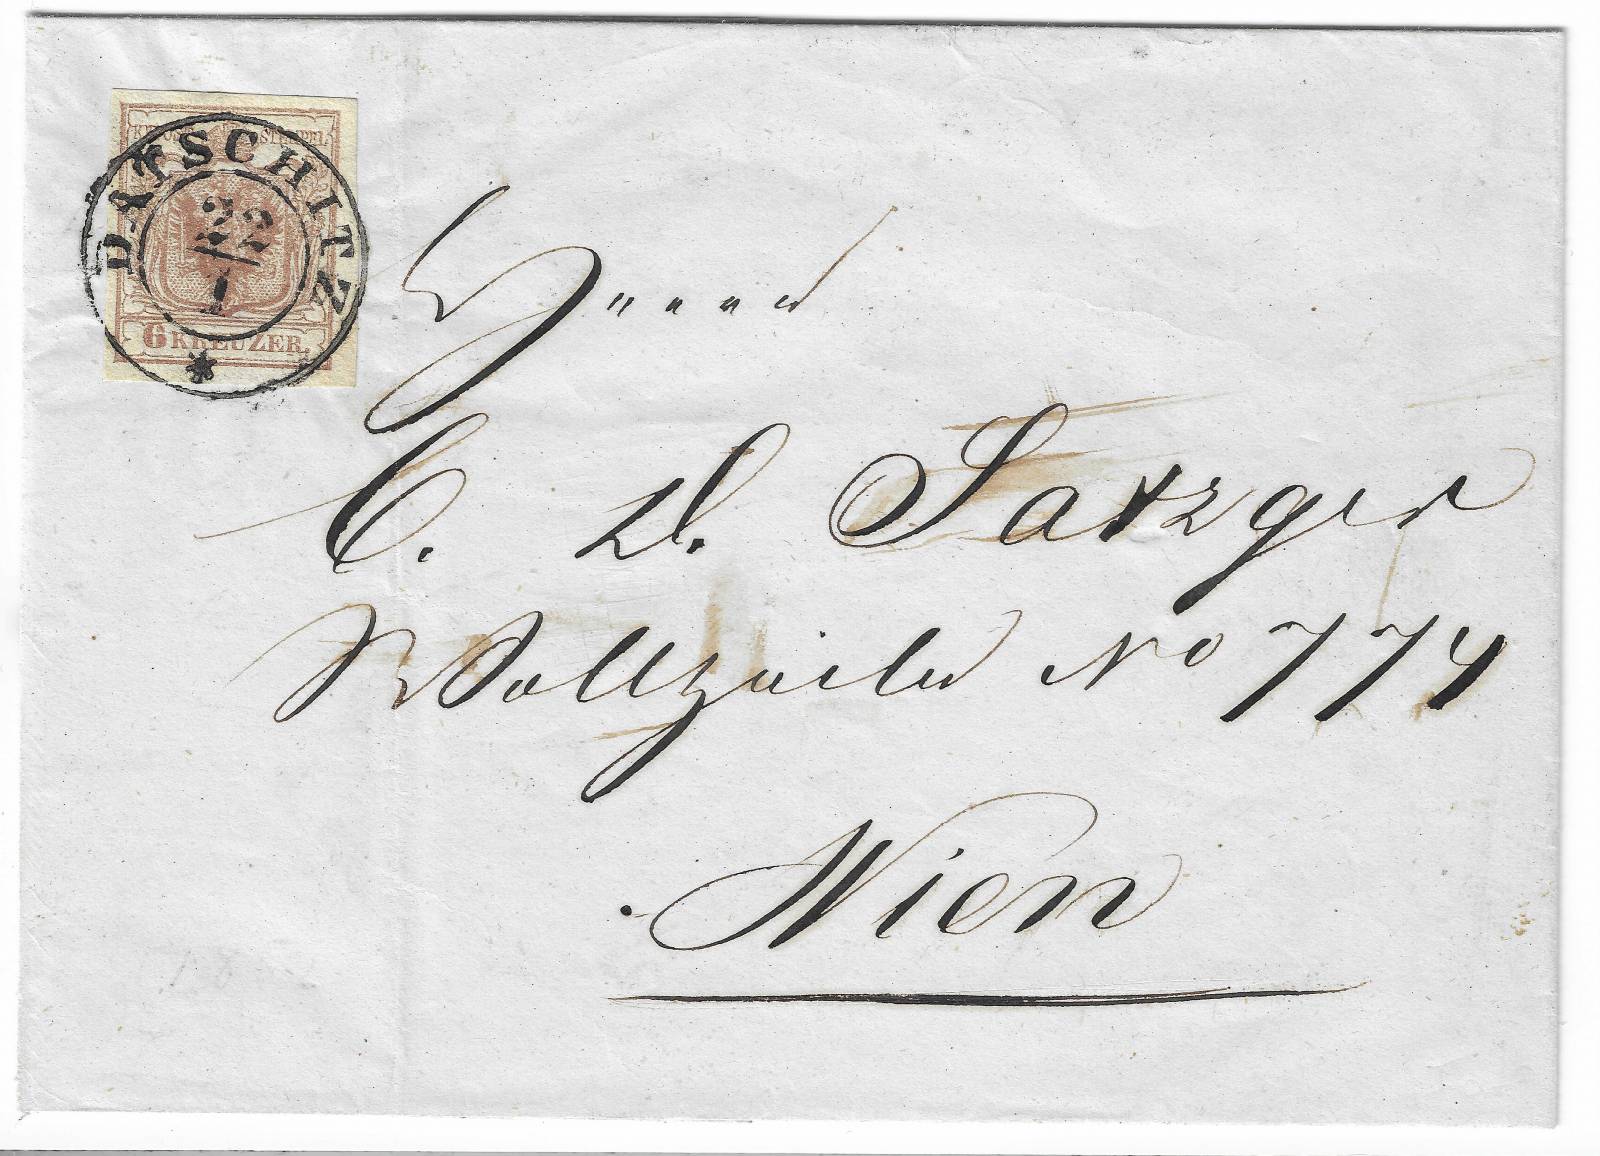 KK POST STEMPEL
DATSCHITZ
22/1
6 KREUZER.
Herrn
C. D. Satzger
Wollzeile No 774
Wien